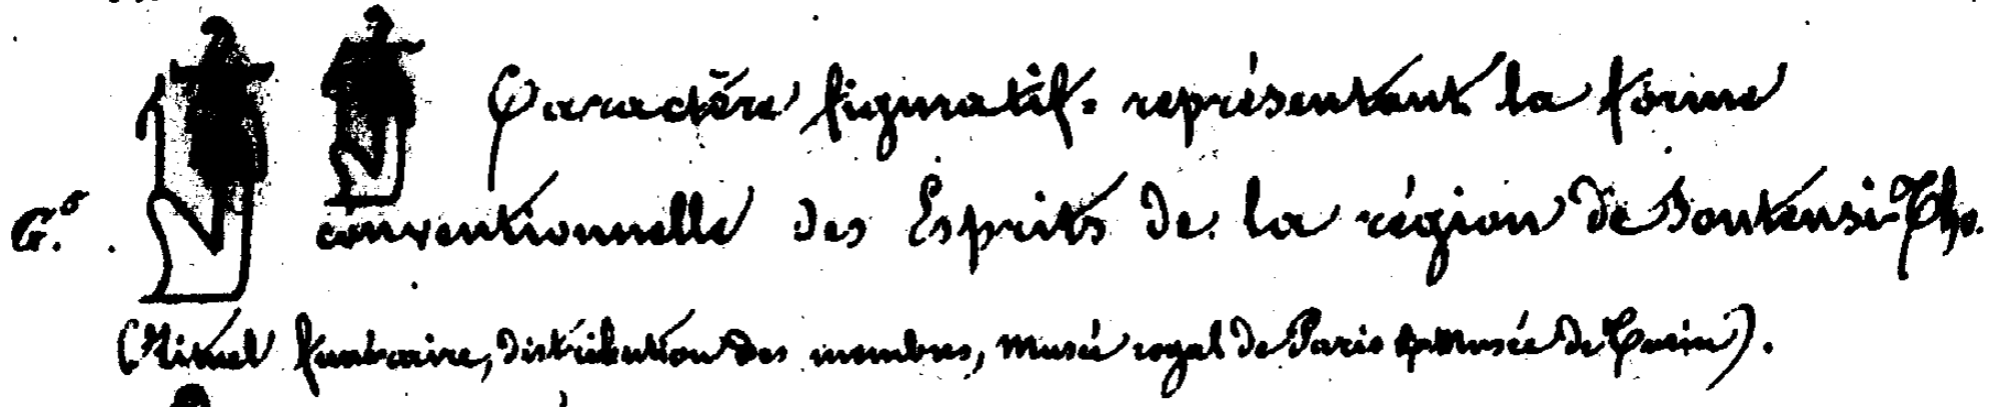 Caractère figuratif. représentant la forme
G.° conventionnelle des Esprits de la région de Soutensi-Tho.
(Rituel funéraire, distribution des membres, musée royal de Paris & Musée de Turin).